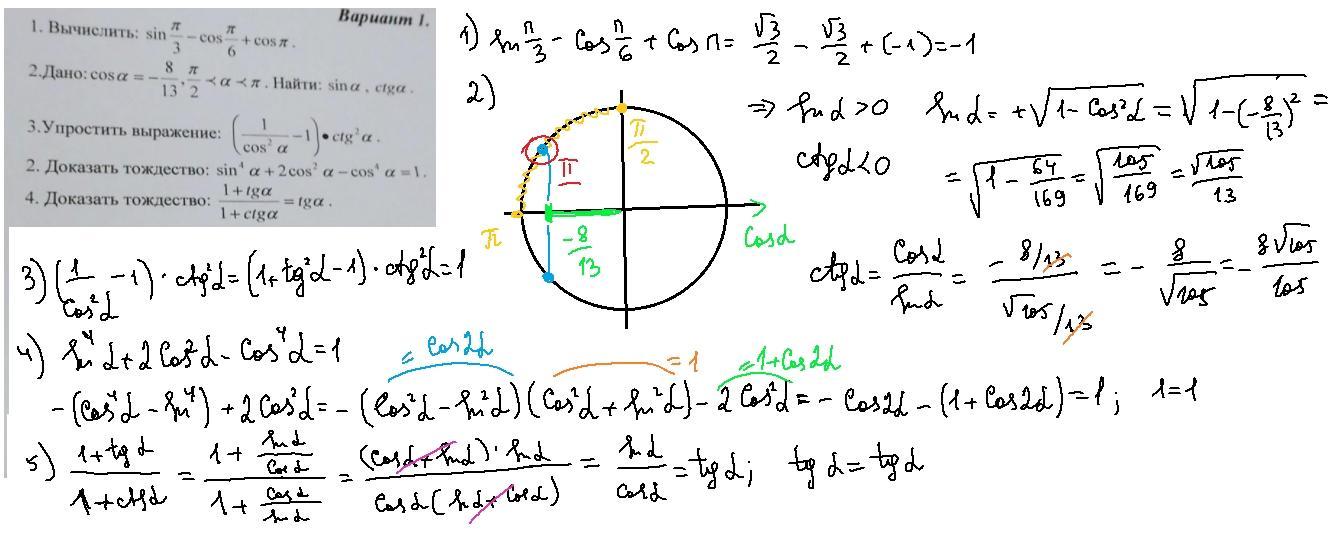 Вариант 1.
1. Вычислить: sin π/3 − cos π/6 + cos π.
2.Дано: cos α = −8/13, π/2 ≺ α ≺ π. Найти: sin α, ctgα.
3.Упростить выражение: (1/cos² α − 1)•ctg²α.
2. Доказать тождество: sin⁴ α + 2cos² α − cos⁴ α = 1.
4. Доказать тождество: (1+tgα)/(1+ctgα) = tgα.
1) sin π/3 − cos π/6 + cos π = √3/2 − √3/2 + (−1) = −1
2)
π/2
π
π
−8/13
cosα
⇒ sin α > 0 sin α = +√(1 − cos²α) = √(1−(−8/13)²) =
ctgα < 0 = √(1 − 64/169) = √(105/169) = √105/13
ctgα = cosα/sinα = (−8/13)/(√105/13) = −8/√105 = −8√105/105
3) (1/cos²α − 1) · ctg²α = (1+tg²α−1) · ctg²α = 1
4) sin⁴α + 2cos²α − cos⁴α = 1
= cos2α = 1 = 1+cos2α
−(cos⁴α − sin⁴) + 2cos²α = −(cos²α − sin²α)(cos²α + sin²α) − 2cos²α = −cos2α − (1+cos2α) = 1; 1=1
5) (1+tgα)/(1+ctgα) = (1+ sinα/cosα)/(1+ cosα/sinα) = ((cosα+sinα)·sinα)/(cosα(sinα+cosα)) = sinα/cosα = tgα; tgα = tgα